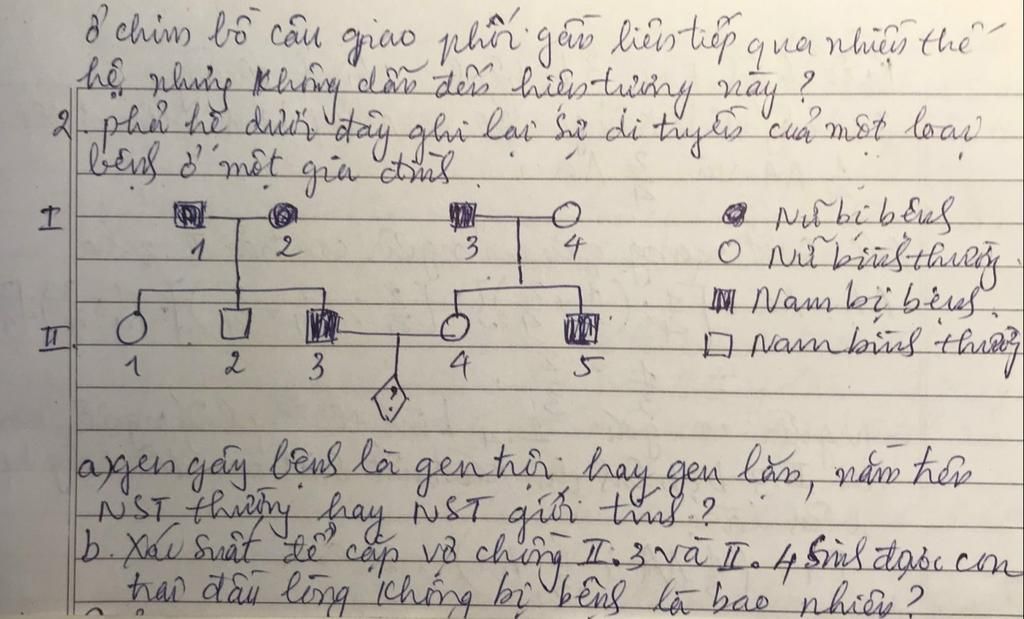 ở chim bồ câu giao phối gần liên tiếp qua nhiều thế
hệ nhưng không dẫn đến hiện tượng này?
2. phả hệ dưới đây ghi lại sự di truyền của một loại
bệnh ở một gia đình.
I 1 2 3 4
Nữ bị bệnh
Nữ bình thường
Nam bị bệnh
Nam bình thường
II 1 2 3 4 5
?
a) gen gây bệnh là gen trội hay gen lặn, nằm trên
NST thường hay NST giới tính?
b. Xác suất để cặp vợ chồng II.3 và II.4 sinh được con
trai đầu lòng không bị bệnh là bao nhiêu?